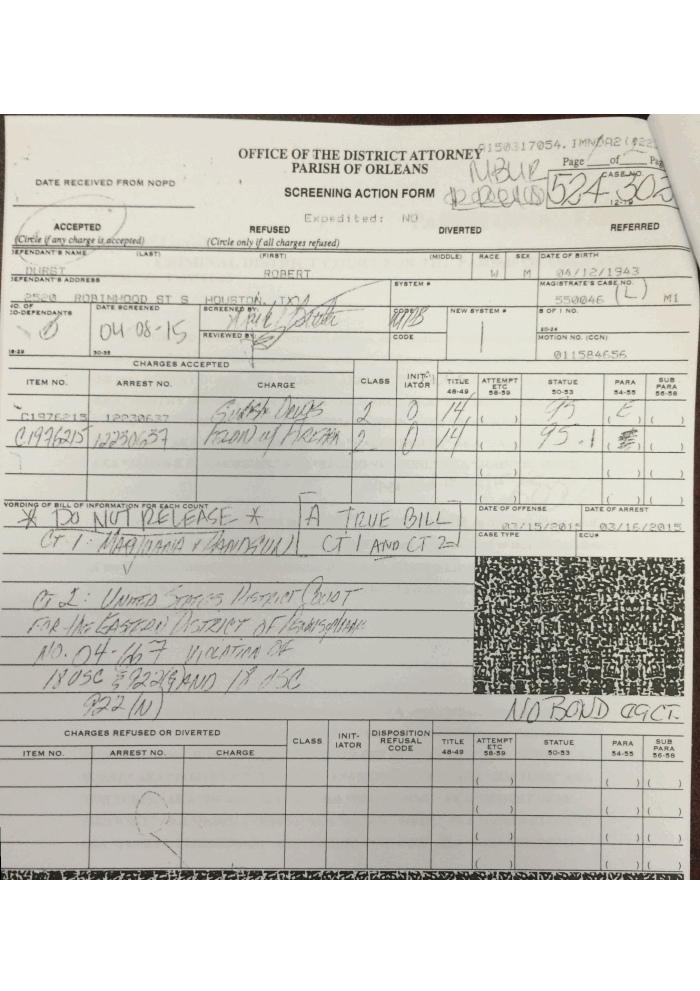 A150317054.
OFFICE OF THE DISTRICT ATTORNEY
PARISH OF ORLEANS
Page of
DATE RECEIVED FROM NOPD
SCREENING ACTION FORM
CASE NO.
524-303
Expedited: NO
ACCEPTED REFUSED DIVERTED REFERRED
(Circle if any charge is accepted) (Circle only if all charges refused)
DEFENDANT'S NAME (LAST) (FIRST) (MIDDLE) RACE SEX DATE OF BIRTH
DURST ROBERT W M 04/12/1943
DEFENDANT'S ADDRESS SYSTEM # MAGISTRATE'S CASE NO.
2520 ROBINHOOD ST S HOUSTON, TX 550046 (L) M1
NO. OF CO-DEFENDANTS DATE SCREENED SCREENED BY: CODE NEW SYSTEM # B OF I NO.
04-08-15
REVIEWED BY CODE MOTION NO. (CCN)
011584656
CHARGES ACCEPTED
ITEM NO. ARREST NO. CHARGE CLASS INIT-IATOR TITLE 48-49 ATTEMPT ETC 58-59 STATUE 50-53 PARA 54-55 SUB PARA 56-58
C1976215 12230637 2 0 14 ( ) 95 ( E ) ( )
C1976215 12230637 FELON W/ FIREARM 2 0 14 ( ) 95.1 ( ) ( )
WORDING OF BILL OF INFORMATION FOR EACH COUNT DATE OF OFFENSE DATE OF ARREST
* DO NOT RELEASE * A TRUE BILL 03/15/2015 03/16/2015
CT 1: MARIJUANA + HANDGUN CT 1 AND CT 2 CASE TYPE ECU#
CT 2: UNITED STATES DISTRICT COURT
FOR THE EASTERN DISTRICT OF PENNSYLVANIA
NO. 04-667 VIOLATION OF
18 USC § 922(g) AND 18 USC
922 (N)
NO BOND CGCT.
CHARGES REFUSED OR DIVERTED
ITEM NO. ARREST NO. CHARGE CLASS INIT-IATOR DISPOSITION REFUSAL CODE TITLE 48-49 ATTEMPT ETC 58-59 STATUE 50-53 PARA 54-55 SUB PARA 56-58